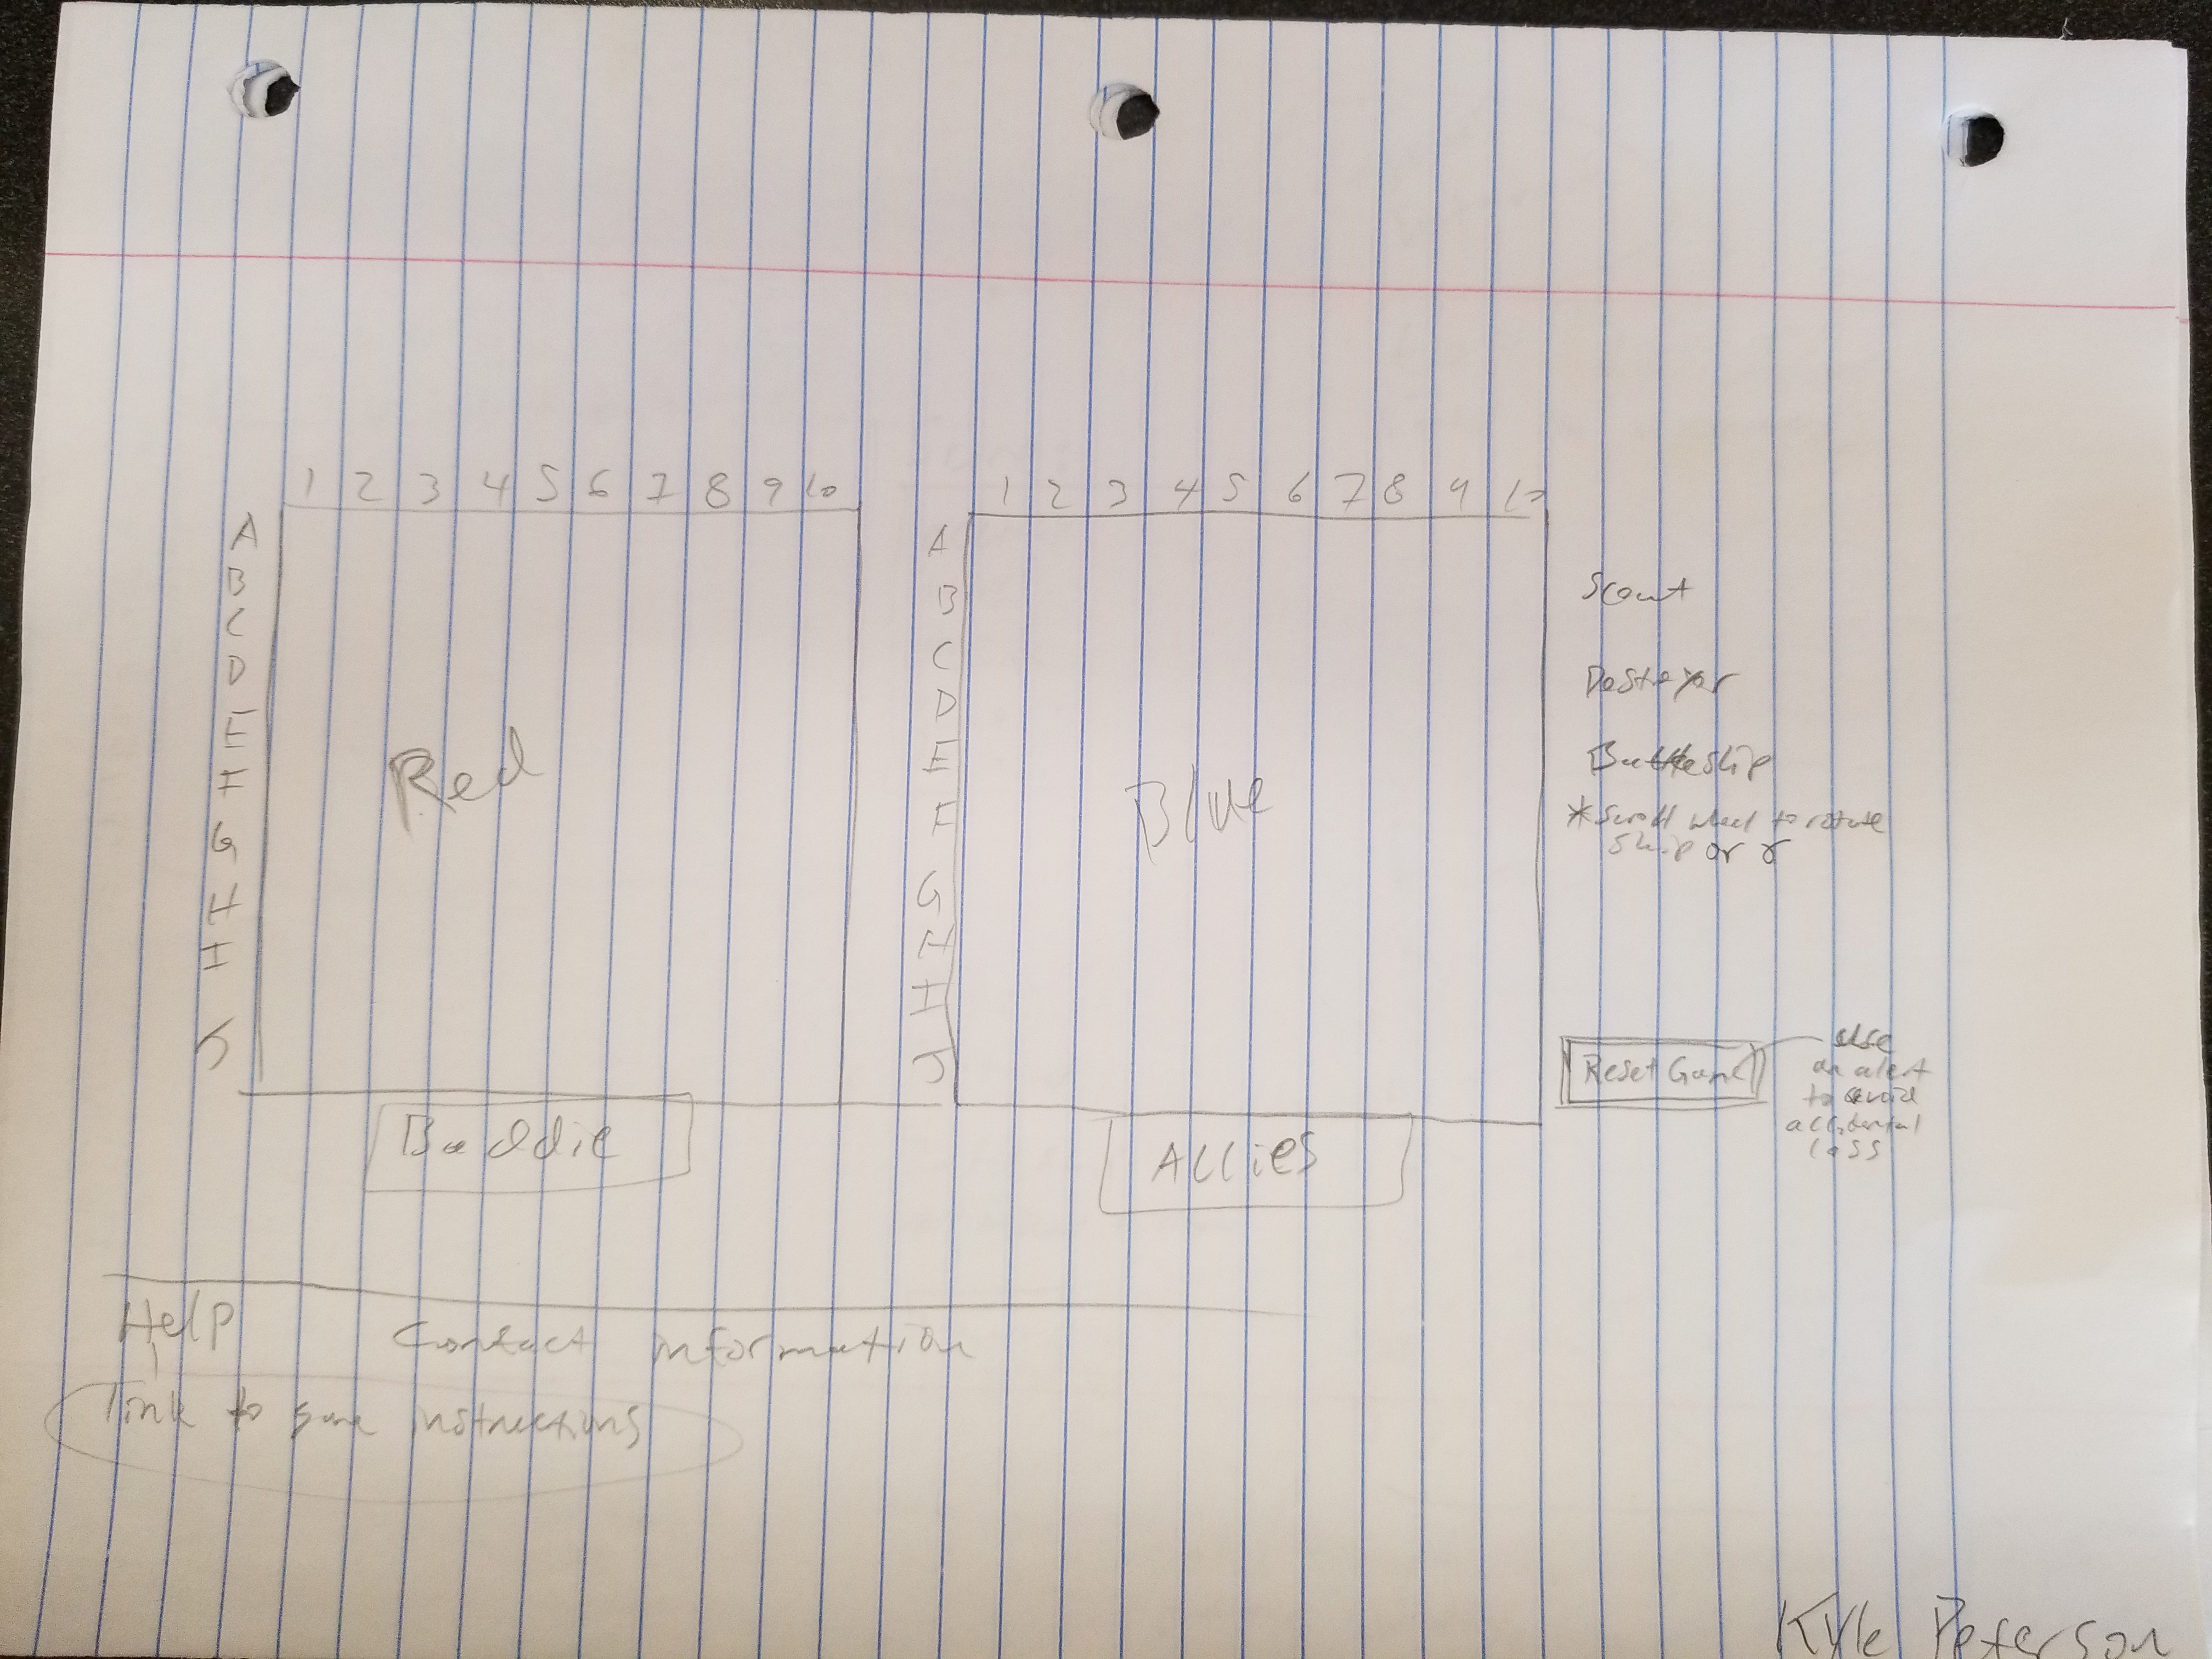 1 2 3 4 5 6 7 8 9 10
A
B
C
D
E
F
G
H
I
J
Red
Baddie
1 2 3 4 5 6 7 8 9 10
A
B
C
D
E
F
G
H
I
J
Blue
Allies
Scout
Destroyer
Battleship
* Scroll wheel to rotate
ship or r
Reset Game
use
an alert
to avoid
accidental
loss
Help
Contact information
link to game instructions
Kyle Peterson